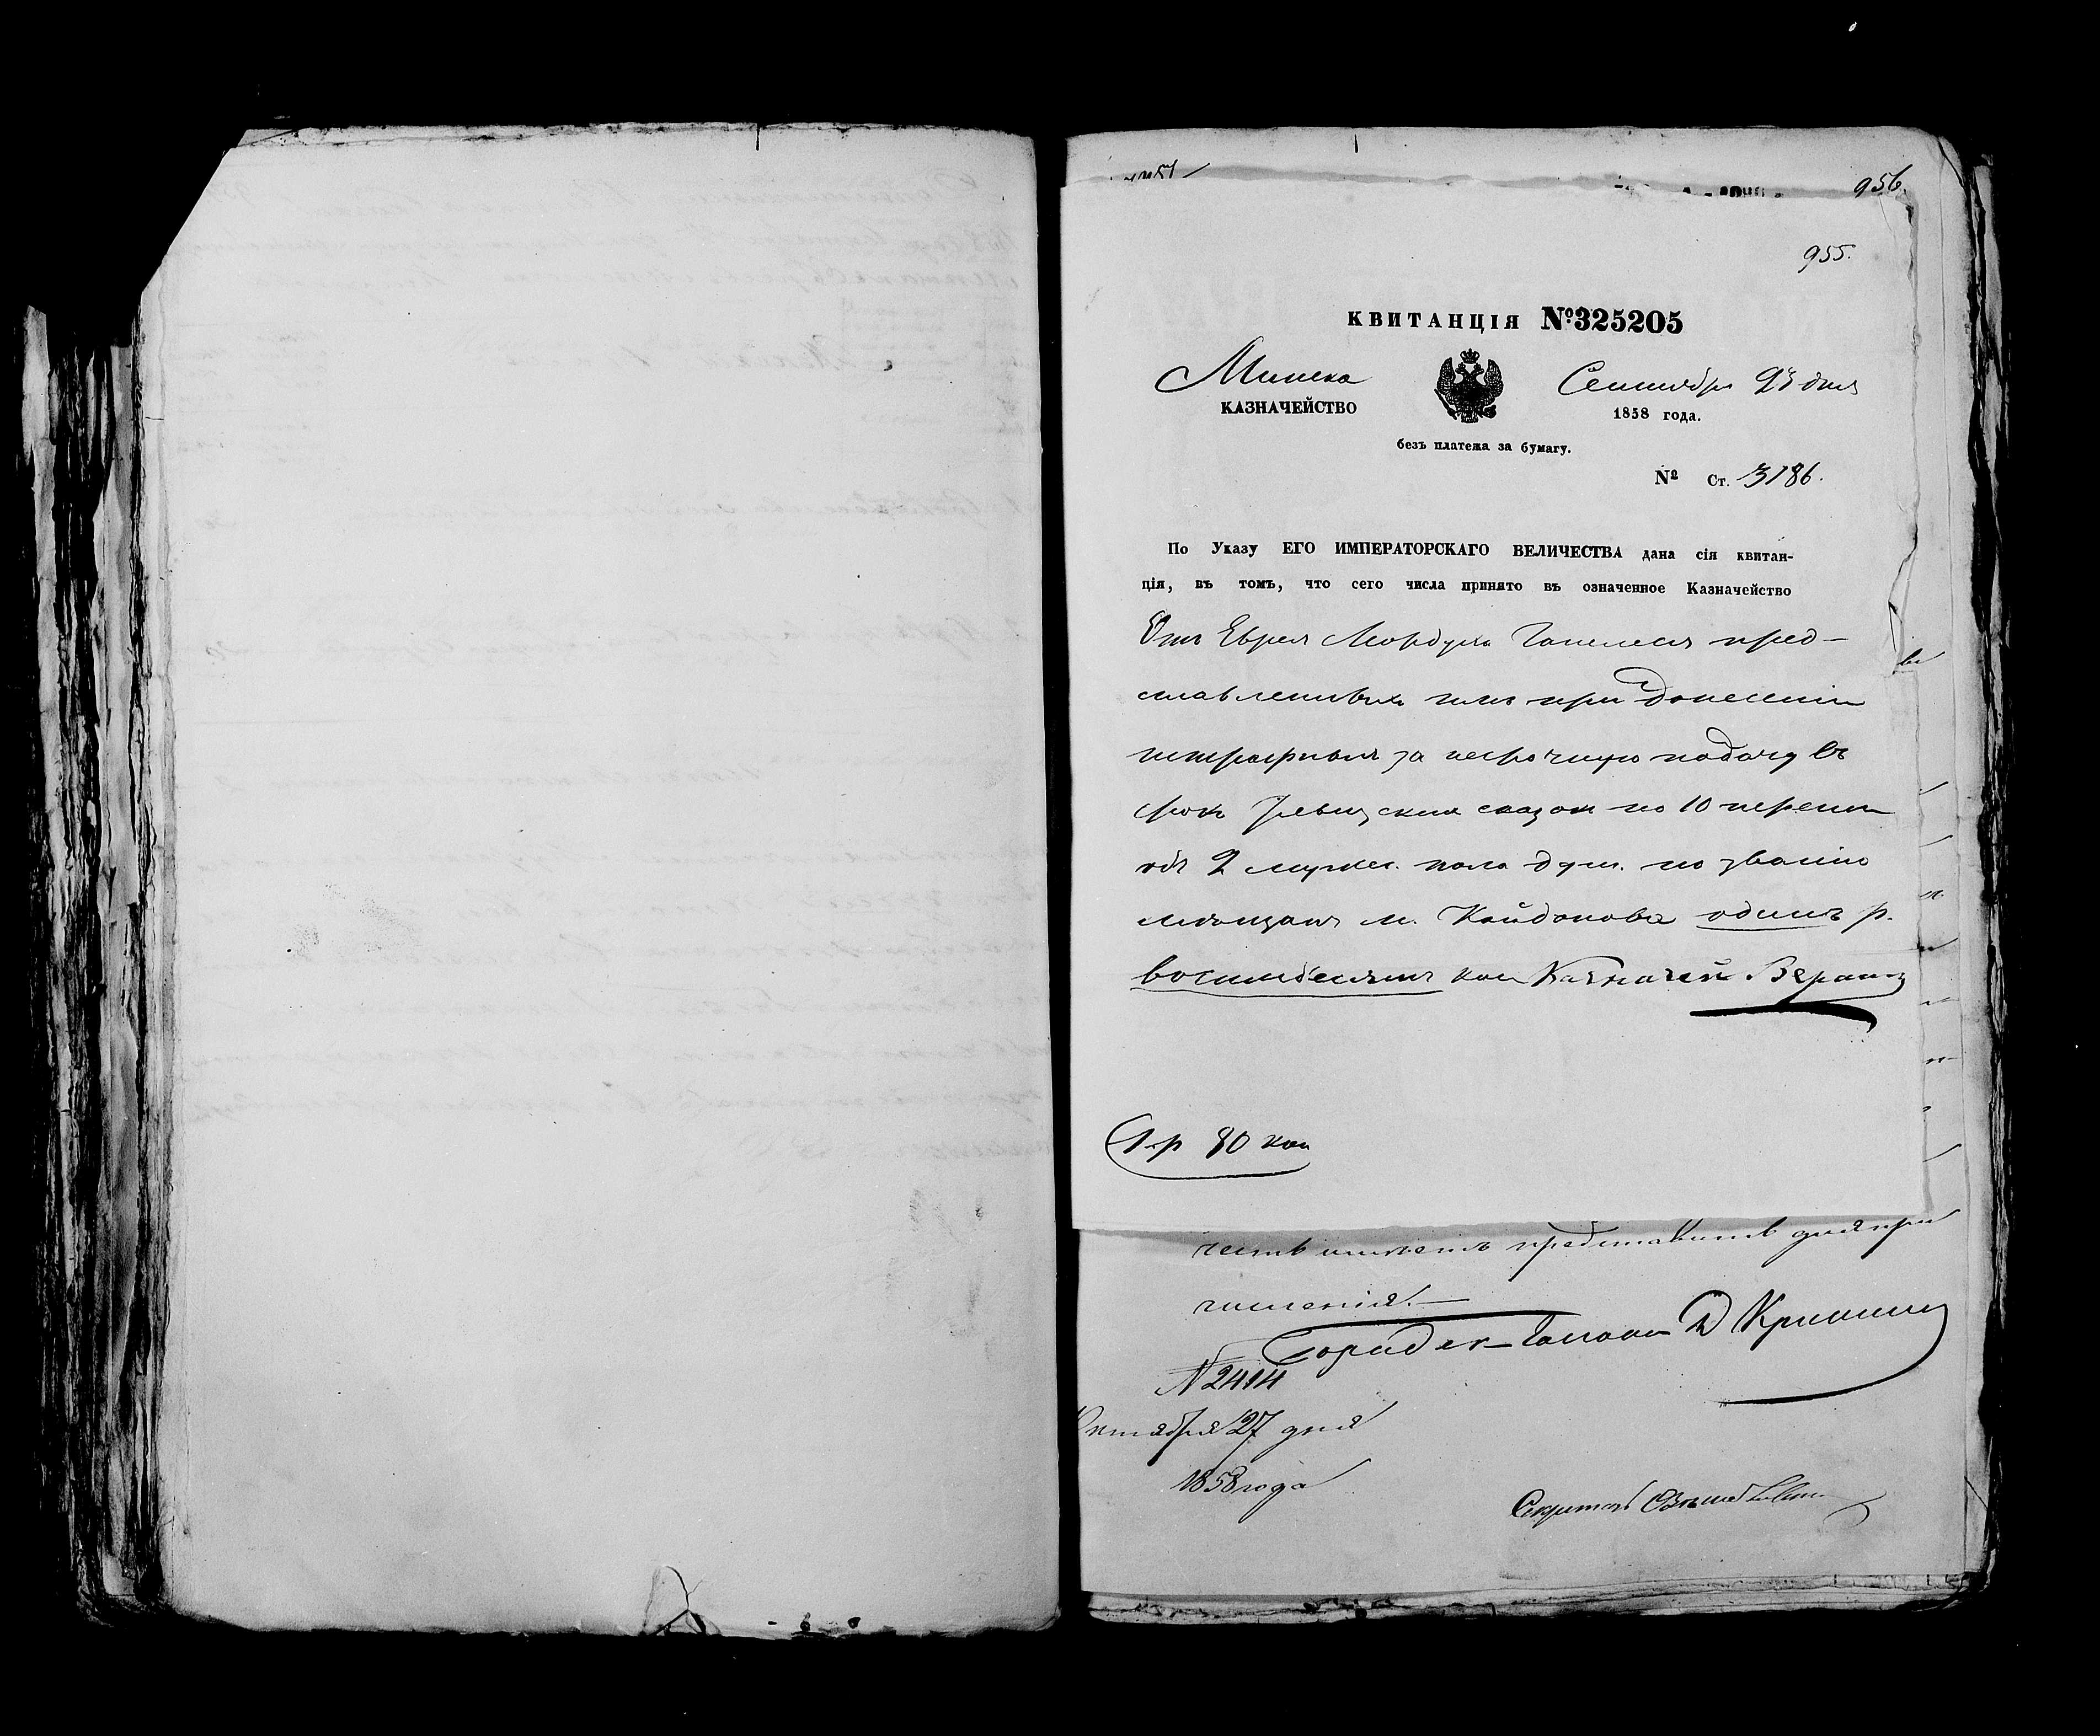 956
955.
КВИТАНЦІЯ №325205
Минска
КАЗНАЧЕЙСТВО
Сентября 23 дня
1858 года.
безъ платежа за бумагу.
№ Ст. 3186.
По Указу ЕГО ИМПЕРАТОРСКАГО ВЕЛИЧЕСТВА дана сія квитан-
ція, въ томъ, что сего числа принято въ означенное Казначейство
Отъ Еврея Мордуха Гопелеса пред-
ставленныхъ имъ при донесеніи
штрафныхъ за несрочную подачу въ
срокъ Ревизскихъ сказокъ по 10 переписи
объ 2 мужес. пола душ. по званію
мѣщанъ м. Койдонова одинъ р.
восимдесятъ коп Казначей
1 р 80 коп
честь имѣетъ представить для при
численія.—
Городск Голова Д
N 2414
Октября 27 дня
1858 года
Секритарь